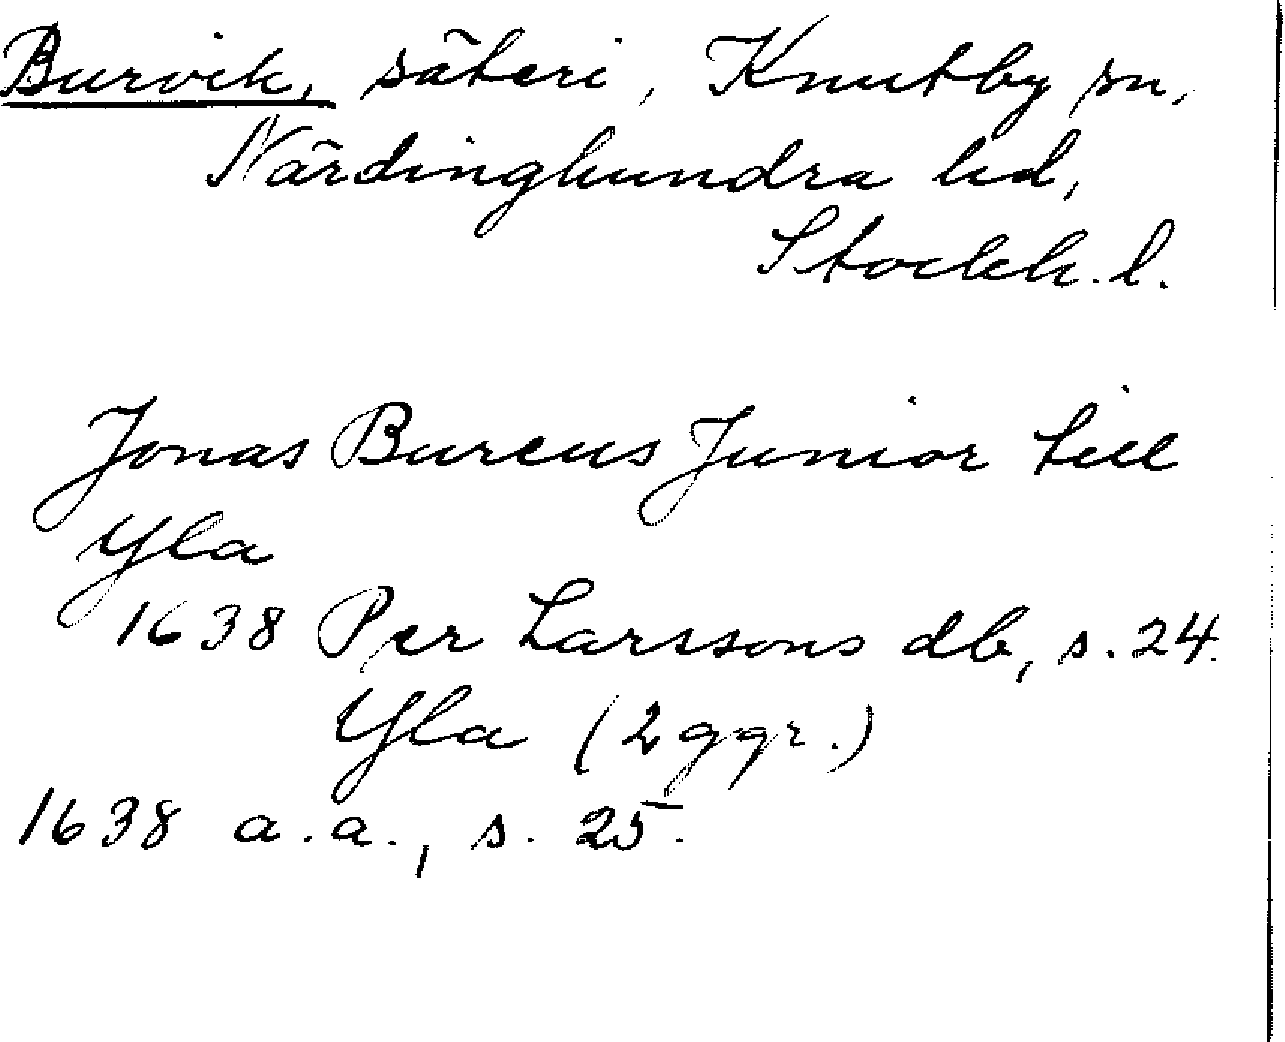 Burvik, säteri, Knutby sn,
Närdinghundra hd,
Stockh. l.
Jonas Bureus Junior till
Yla
1638 Per Larssons db, s. 24.
Yla (2 ggr.)
1638 a.a., s. 25.